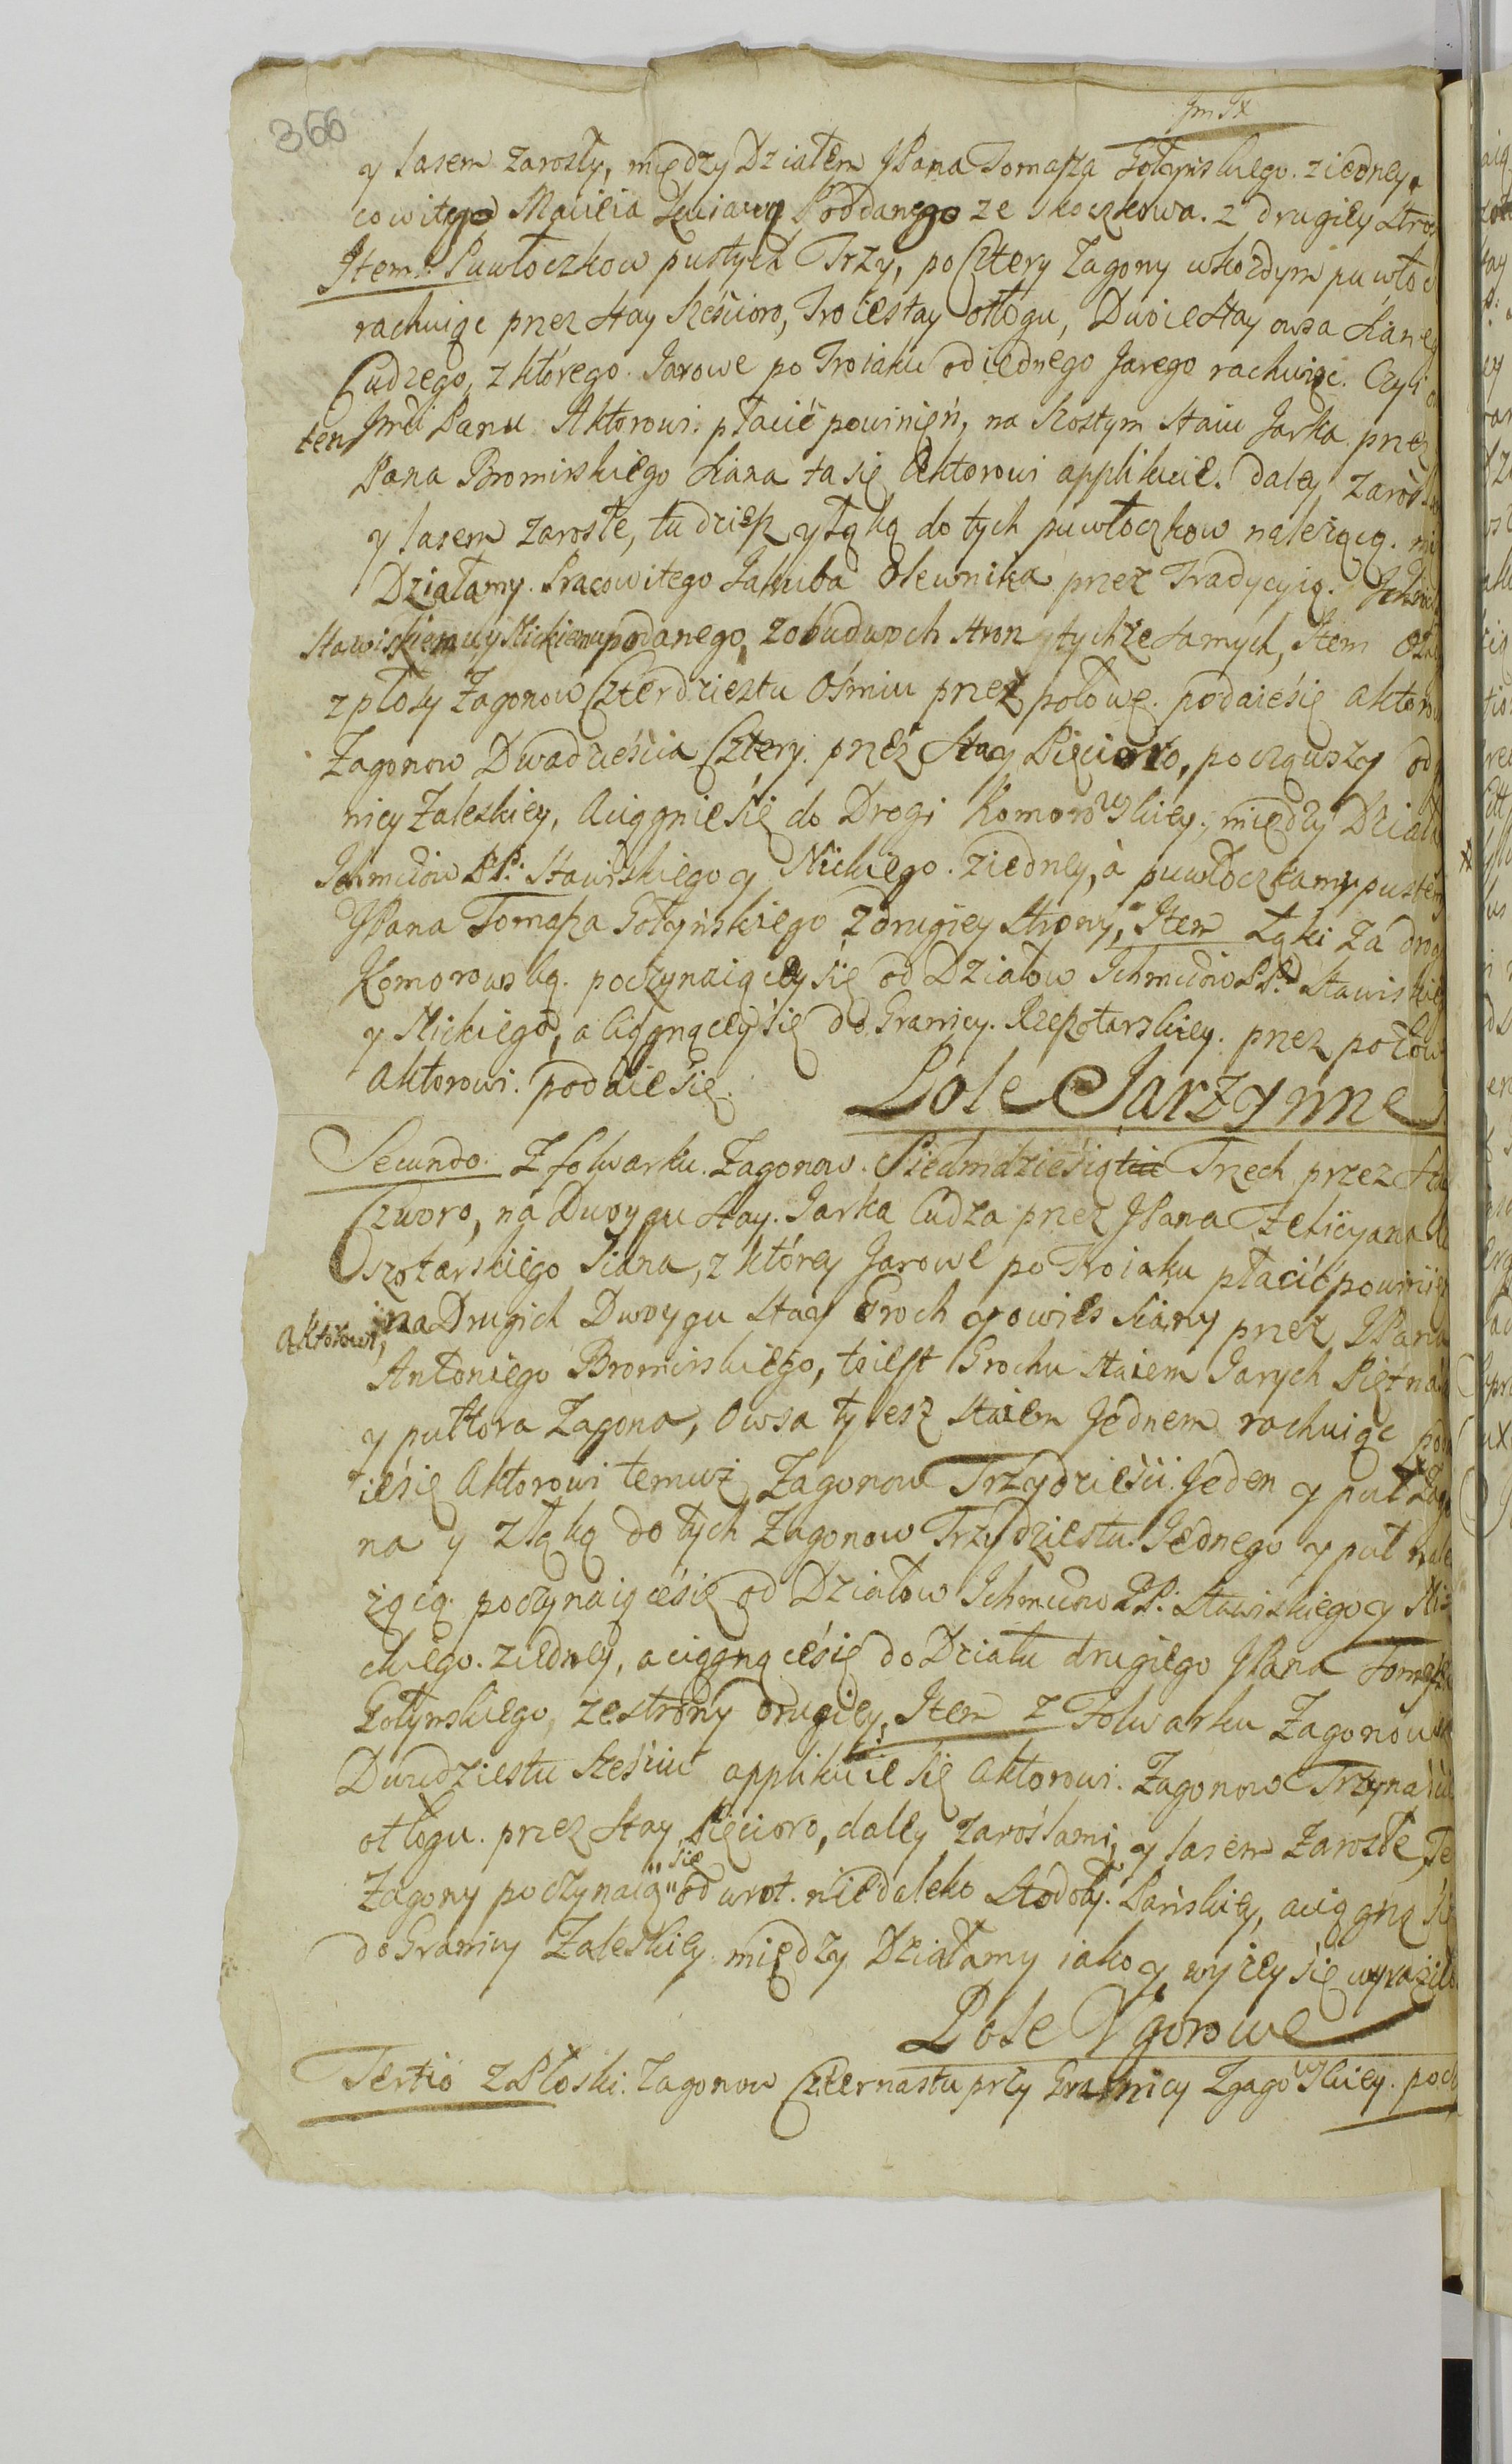 366
y lasem zarosły, między Działem JPana Tomasza Gołyńskiego. ziedney,
cowitego Macieia Poddanego ze Skoczkowa. z drugiey stro
Item. Puwłoczkow pustych Trzy, po Cztery Zagony wkożdym puwłoc
rachuiąc przez stay Sześcioro, Troie stay otłogu, Dwoie stay owsa sian
Cudzego, z którego Jarowe po Troiaku od iednego Jarego rachuiąc.
ten Jmci Panu Aktorowi płacić powinień, na Szostym staiu Jarka przez
Pana Bromirskiego siana ta się Aktorowi applikuie. daley zarośl
y lasem zarosłe, tudziesz y łąką do tych puwłoczkow należącą. mi
Działamy. Pracowitego Jakuba Olewnika przez Tradycyią.
Stawiskiemu y Nickiemu podanego, z obudwoch stron y tychże samych, Item
z płosy Zagonow Czterdziestu Ośmiu przez połowę. podaie się aktoro
Zagonow Dwadzieścia Cztery. przez Stay Pięcioro, począwszy od
nicy Zaleskiey, aciągnie się do Drogi Komorowskiey; między Działa
Ichmciow PP: Stawiskiego y Nickiego. ziedney, à puwłoczkamy puste
JPana Tomasza Gołyńskiego z drugiey strony, Item Łąki za drog
Komorowską. poczynaiącey się od Działow Ichmciow PP: Stawiskieg
y Nickiego, a ciągnącey się do Granicy. Rzepotarskiey. przez połow
aktorowi. podaie się.
Pole Jarzynne
Secundo. Z folwarku. Zagonow. Siedmdziesiąt Trzech przez sta
Czworo, na Dwoygu stay. Jarka Cudza przez JPana Felicyana
szotarskiego siana, z którey Jarowe po Troiaku płacić powinie
Aktorowi, na Drugich Dwoygu stay Groch y owies siany przez JPana
Antoniego Bromirskiego, toiest Grochu staiem Jarych Piętna
y pułtora Zagona, Owsa tylesz staiem Jednem rachuiąc poda
ie się Aktorowi temuż Zagonow Trzydzieści Jeden y puł Zago
na y złąką do tych Zagonow Trzydziestu Jednego y puł nale
żącą poczynaiące się od Działow Ichmciow PP. Stawiskiego y Ni
ckiego. ziedney, a ciągnące się do Działu drugiego JPana Tomasza
Gołynskiego, zestrony drugiey, Item z Folwarku Zagonow
Dwudziestu Sześciu applikuie się aktorowi. Zagonow Trzynaści
otłogu. przez stay Pięcioro, daley zaroślami, y lasem Zarosłe, Te
Zagony poczynaią się od wrot. niedaleko Stodoły. Pańskiey, aciągną się
do Granicy Zaleskiey. między Działamy iako y wyżey się wyraziło
Pole Ugorowe
Tertio z Płoski. Zagonow Czternastu przy Granicy Zgagowskiey. pocz